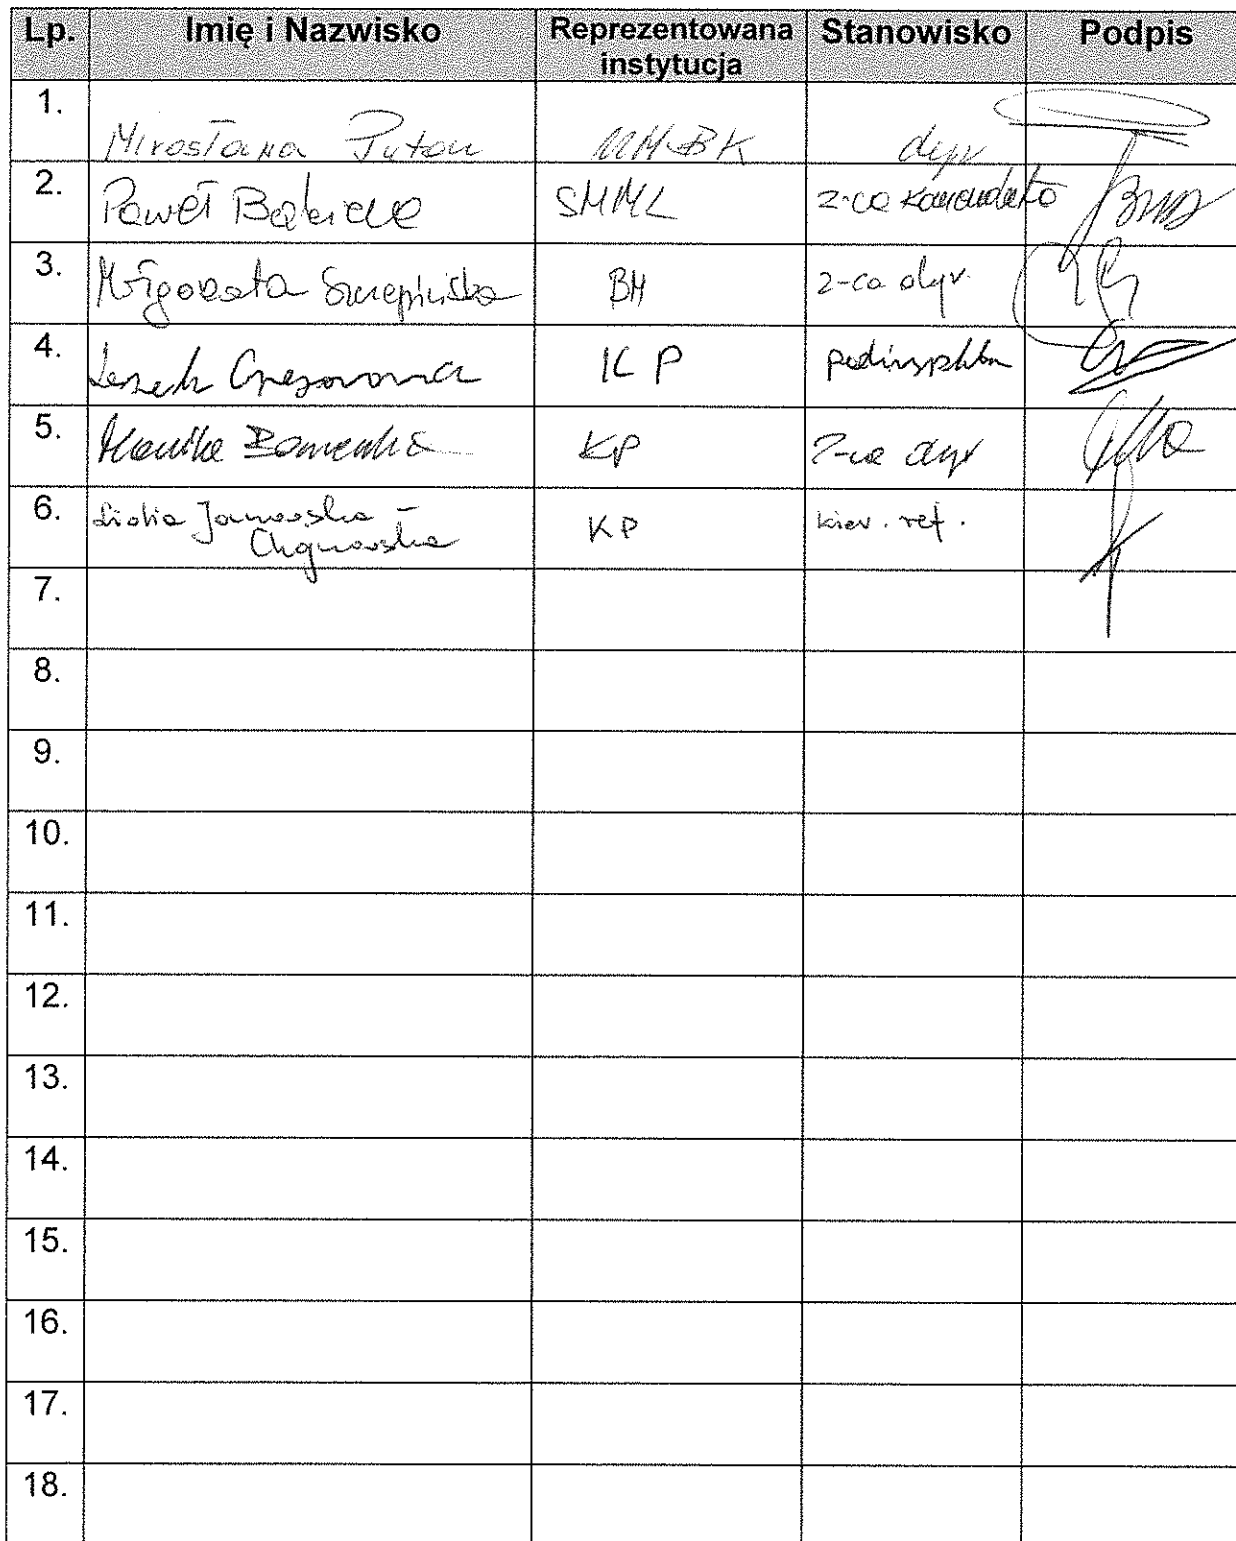 Lp. Imię i Nazwisko Reprezentowana instytucja Stanowisko Podpis
1. Mirosława Puton MMBK dyr
2. Paweł SMML z-ca komendanta
3. Małgorzata BM z-ca dyr.
4. Leszek KP podinspektor
5. Monika KP z-ca dyr
6. Lidia Janowska - KP kier. ref.
7.
8.
9.
10.
11.
12.
13.
14.
15.
16.
17.
18.